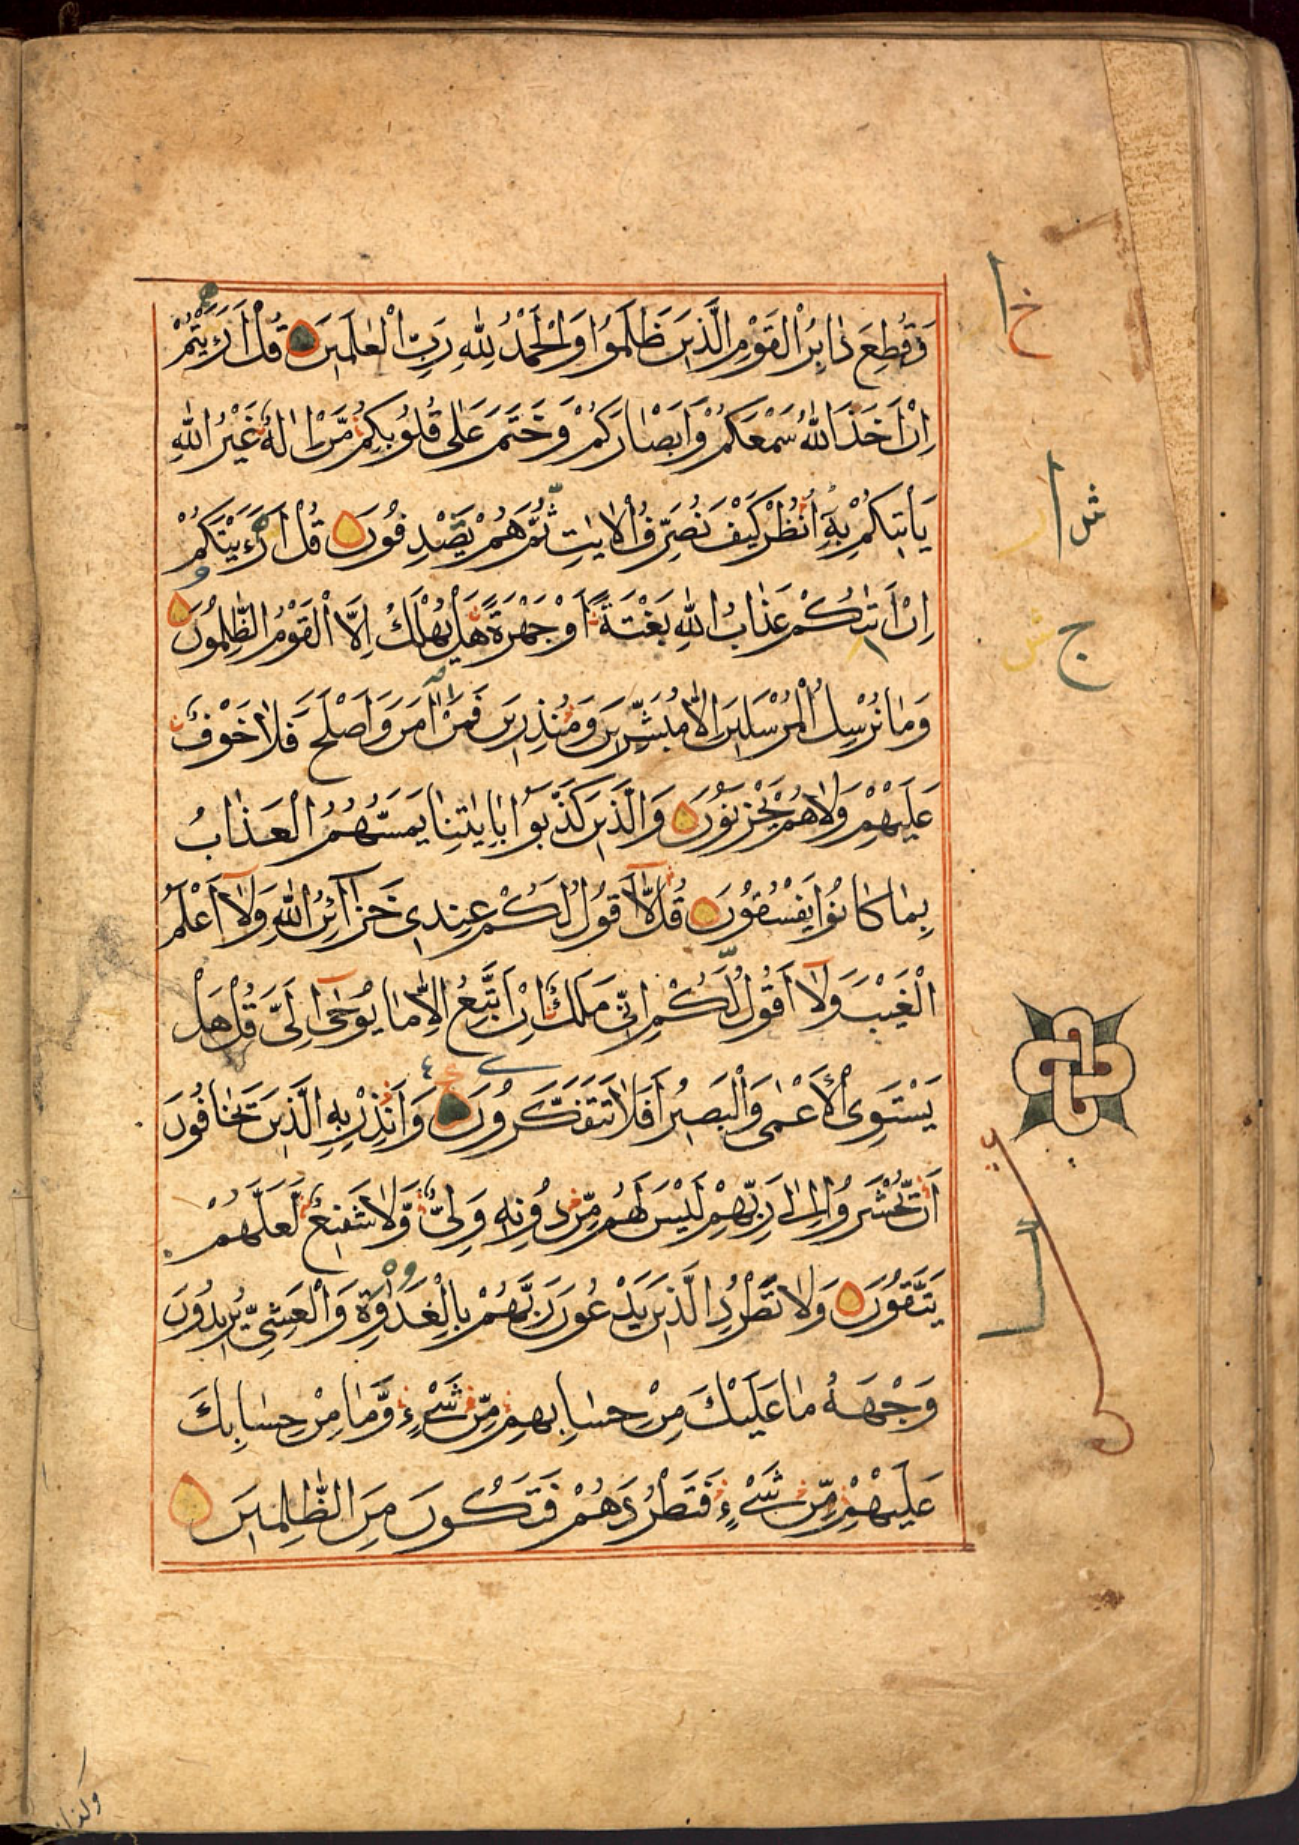 وَقُطِعَ دَابِرُ الْقَوْمِ الَّذِينَ ظَلَمُوا وَالْحَمْدُ لِلّٰهِ رَبِّ الْعٰلَمِينَ قُلْ اَرَءَيْتُمْ
اِنْ اَخَذَ اللّٰهُ سَمْعَكُمْ وَاَبْصَارَكُمْ وَخَتَمَ عَلٰى قُلُوبِكُمْ مَّنْ اِلٰهٌ غَيْرُ اللّٰهِ
يَاْتِيكُمْ بِهِ اُنْظُرْ كَيْفَ نُصَرِّفُ الْاٰيٰتِ ثُمَّ هُمْ يَصْدِفُونَ قُلْ اَرَءَيْتَكُمْ
اِنْ اَتٰىكُمْ عَذَابُ اللّٰهِ بَغْتَةً اَوْ جَهْرَةً هَلْ يُهْلَكُ اِلَّا الْقَوْمُ الظّٰلِمُونَ
وَمَا نُرْسِلُ الْمُرْسَلِينَ اِلَّا مُبَشِّرِينَ وَمُنْذِرِينَ فَمَنْ اٰمَنَ وَاَصْلَحَ فَلَا خَوْفٌ
عَلَيْهِمْ وَلَا هُمْ يَحْزَنُونَ وَالَّذِينَ كَذَّبُوا بِاٰيٰتِنَا يَمَسُّهُمُ الْعَذَابُ
بِمَا كَانُوا يَفْسُقُونَ قُلْ لَّا اَقُولُ لَكُمْ عِنْدِي خَزَآئِنُ اللّٰهِ وَلَا اَعْلَمُ
الْغَيْبَ وَلَا اَقُولُ لَكُمْ اِنِّي مَلَكٌ اِنْ اَتَّبِعُ اِلَّا مَا يُوحٰى اِلَيَّ قُلْ هَلْ
يَسْتَوِي الْاَعْمٰى وَالْبَصِيرُ اَفَلَا تَتَفَكَّرُونَ وَاَنْذِرْ بِهِ الَّذِينَ يَخَافُونَ
اَنْ يُّحْشَرُوا اِلٰى رَبِّهِمْ لَيْسَ لَهُمْ مِّنْ دُونِهِ وَلِيٌّ وَّلَا شَفِيعٌ لَّعَلَّهُمْ
يَتَّقُونَ وَلَا تَطْرُدِ الَّذِينَ يَدْعُونَ رَبَّهُمْ بِالْغَدٰوةِ وَالْعَشِيِّ يُرِيدُونَ
وَجْهَهُ مَا عَلَيْكَ مِنْ حِسَابِهِمْ مِّنْ شَيْءٍ وَّمَا مِنْ حِسَابِكَ
عَلَيْهِمْ مِّنْ شَيْءٍ فَتَطْرُدَهُمْ فَتَكُونَ مِنَ الظّٰلِمِينَ